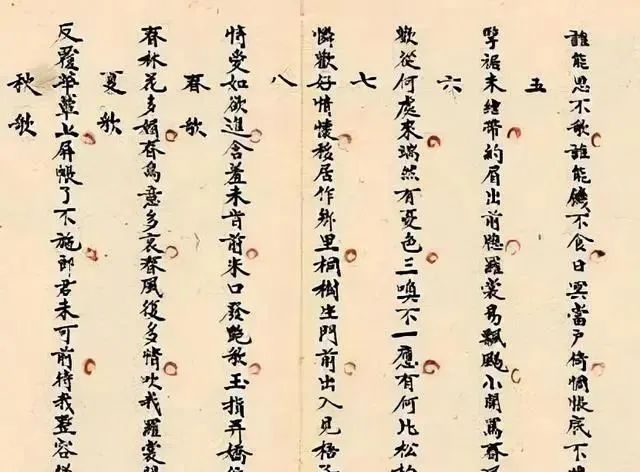 誰能思不歌誰能饑不食日冥當戶倚惆悵底不
五
擥裾未結帶約眉出前牕羅裳易飄颺小開罵春
六
歡從何處來端然有憂色三喚不一應有何比松柏
七
憐歡好情懷移居作鄉里桐樹生門前出入見梧子
八
恃愛如欲進含羞未肯前朱口發艷歌玉指弄嬌
春歌
春林花多媚春鳥意多哀春風復多情吹我羅裳
夏歌
反覆華簟上屏帳了不施郎君未可前待我整容儀
秋歌